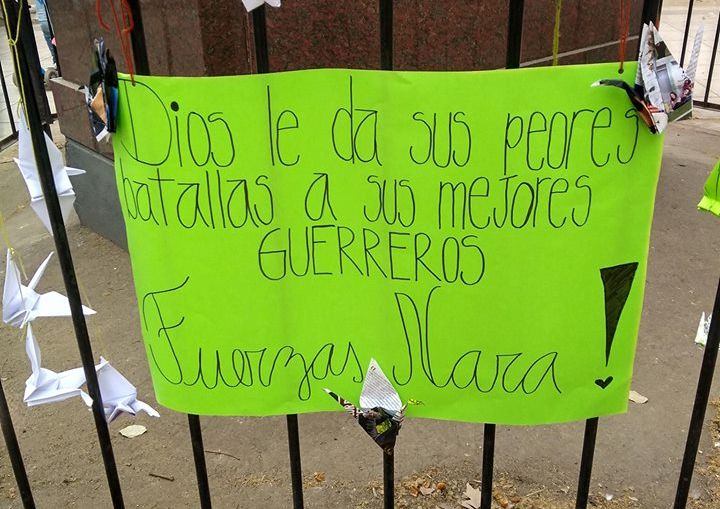 Dios le da sus peores
batallas a sus mejores
GUERREROS
Fuerzas Nara!